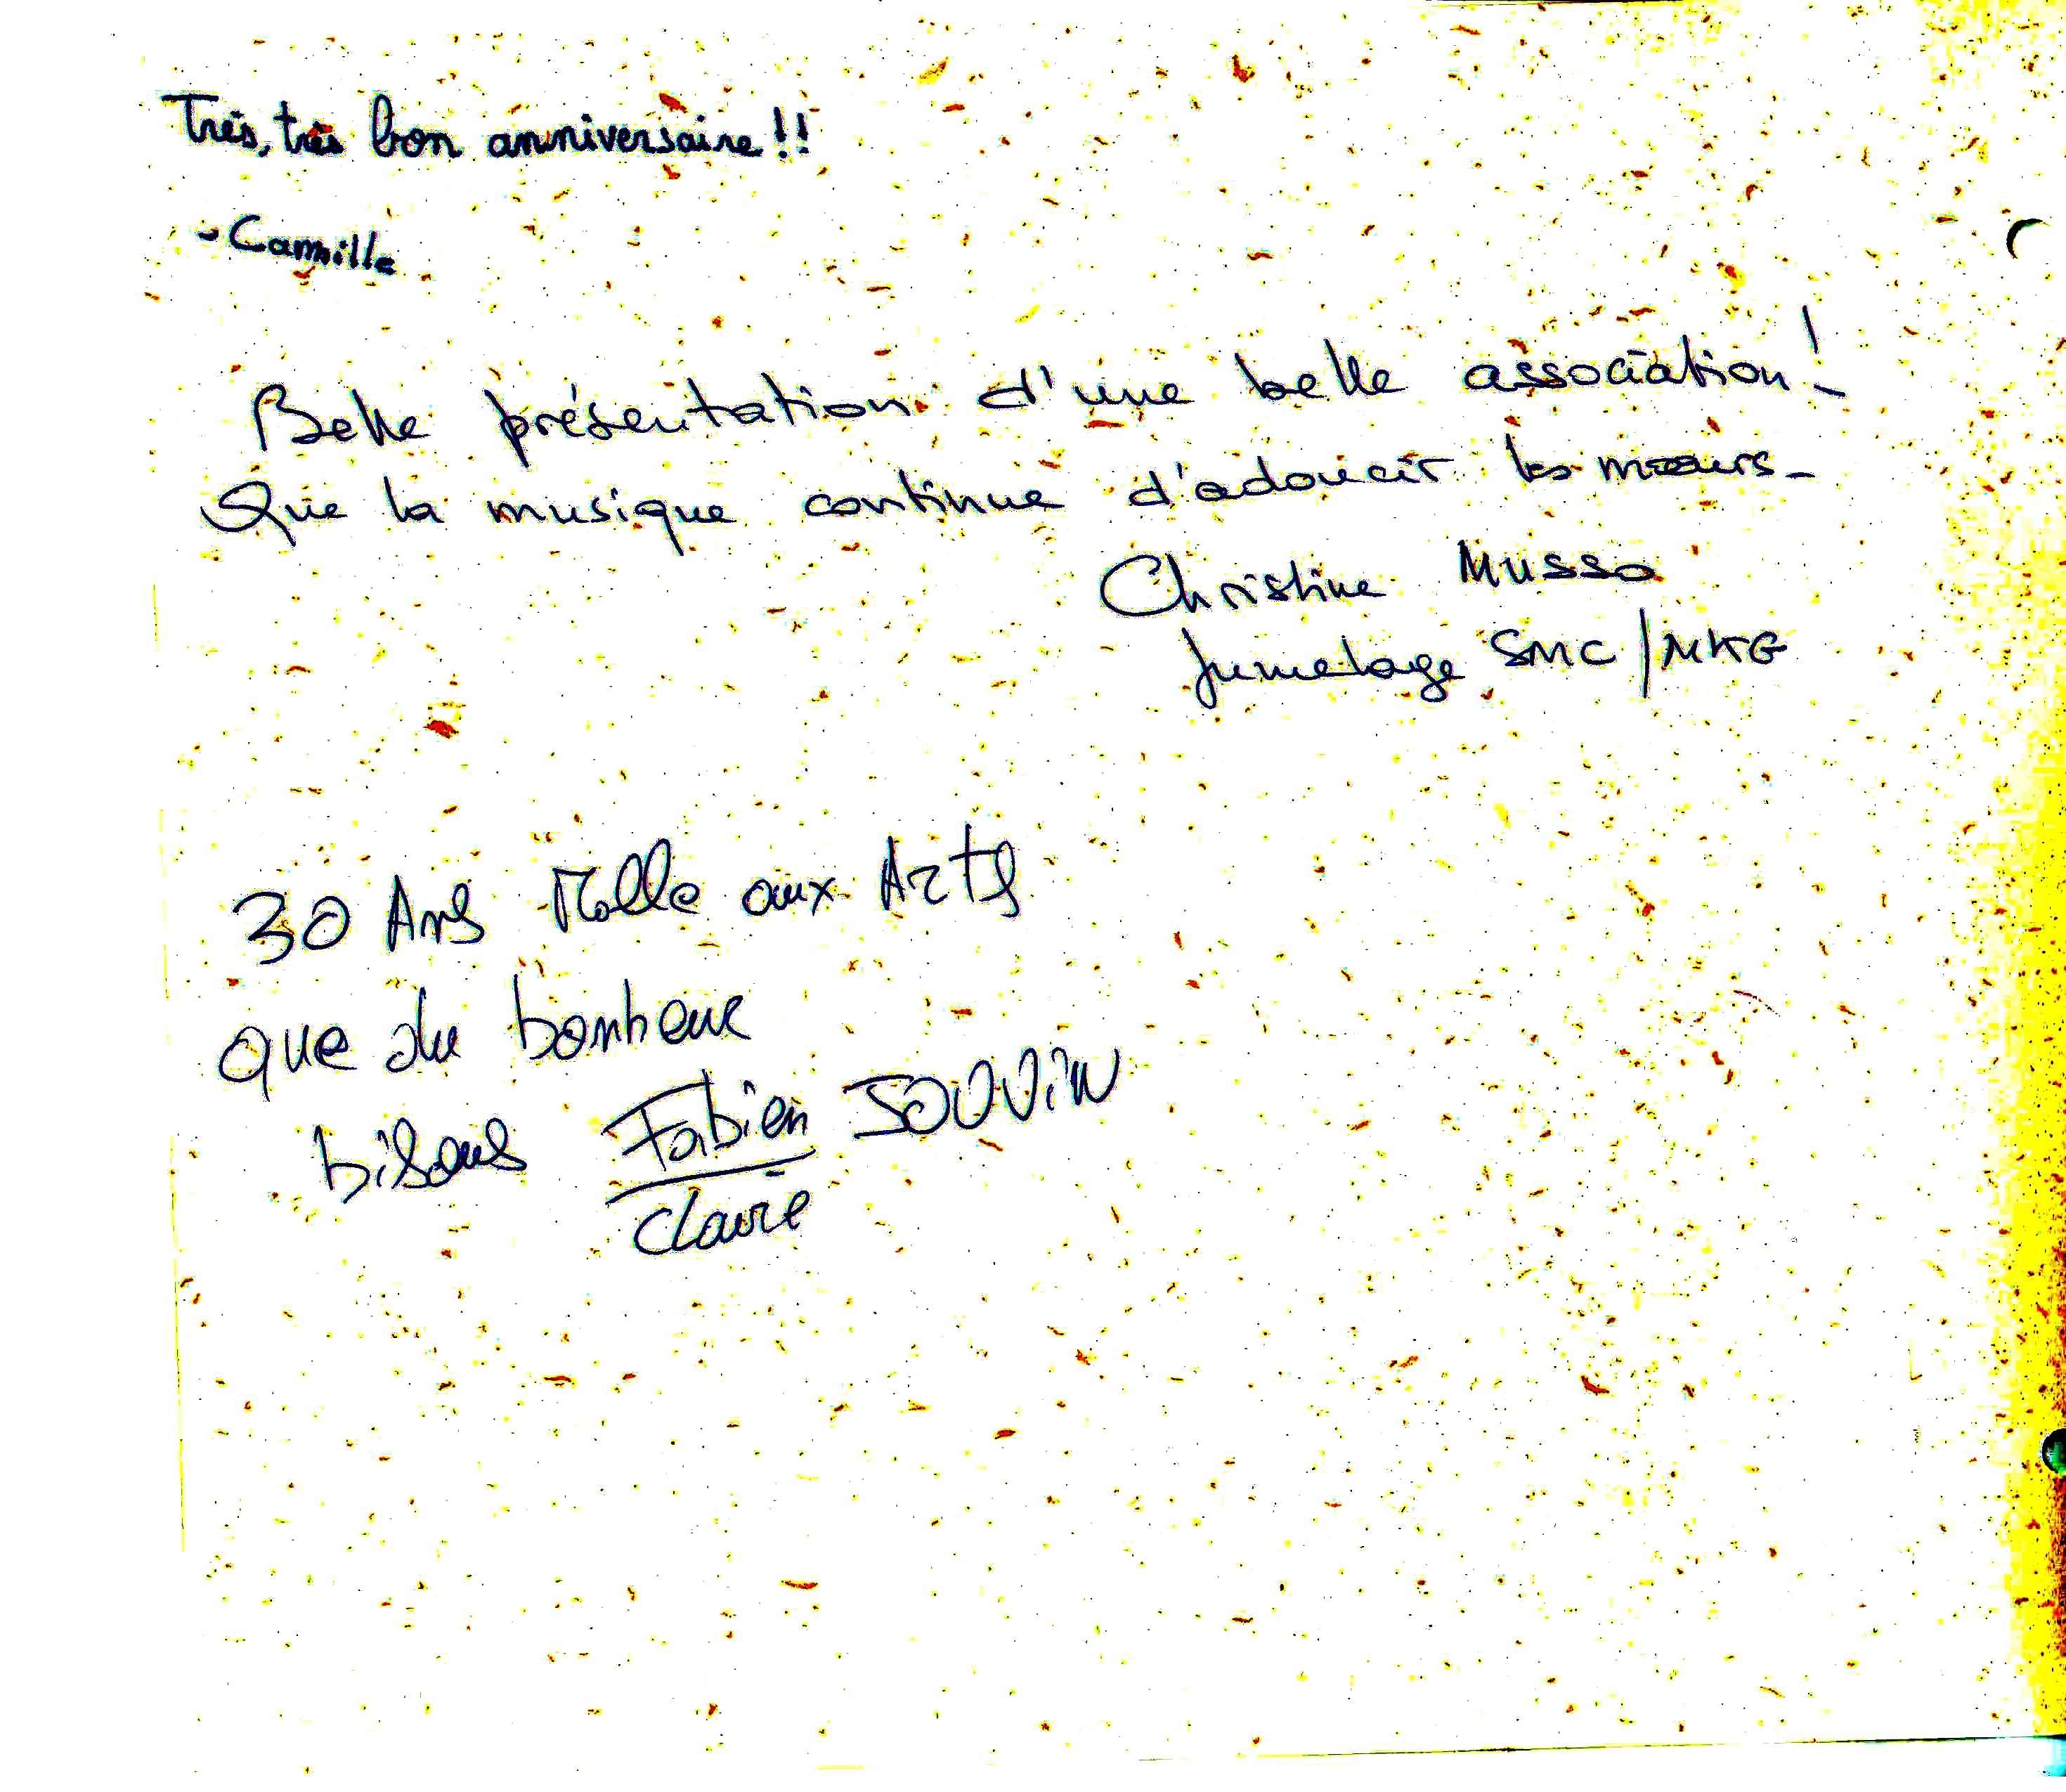 Très, très bon anniversaire!!
- Camille
Belle présentation d'une belle association!
Que la musique continue d'adoucir les mœurs -
Christine Musso
Jumelage SMC / NKG
30 Ans Molle aux Arts
que du bonheur
bisous Fabien JOUVIN
Claire